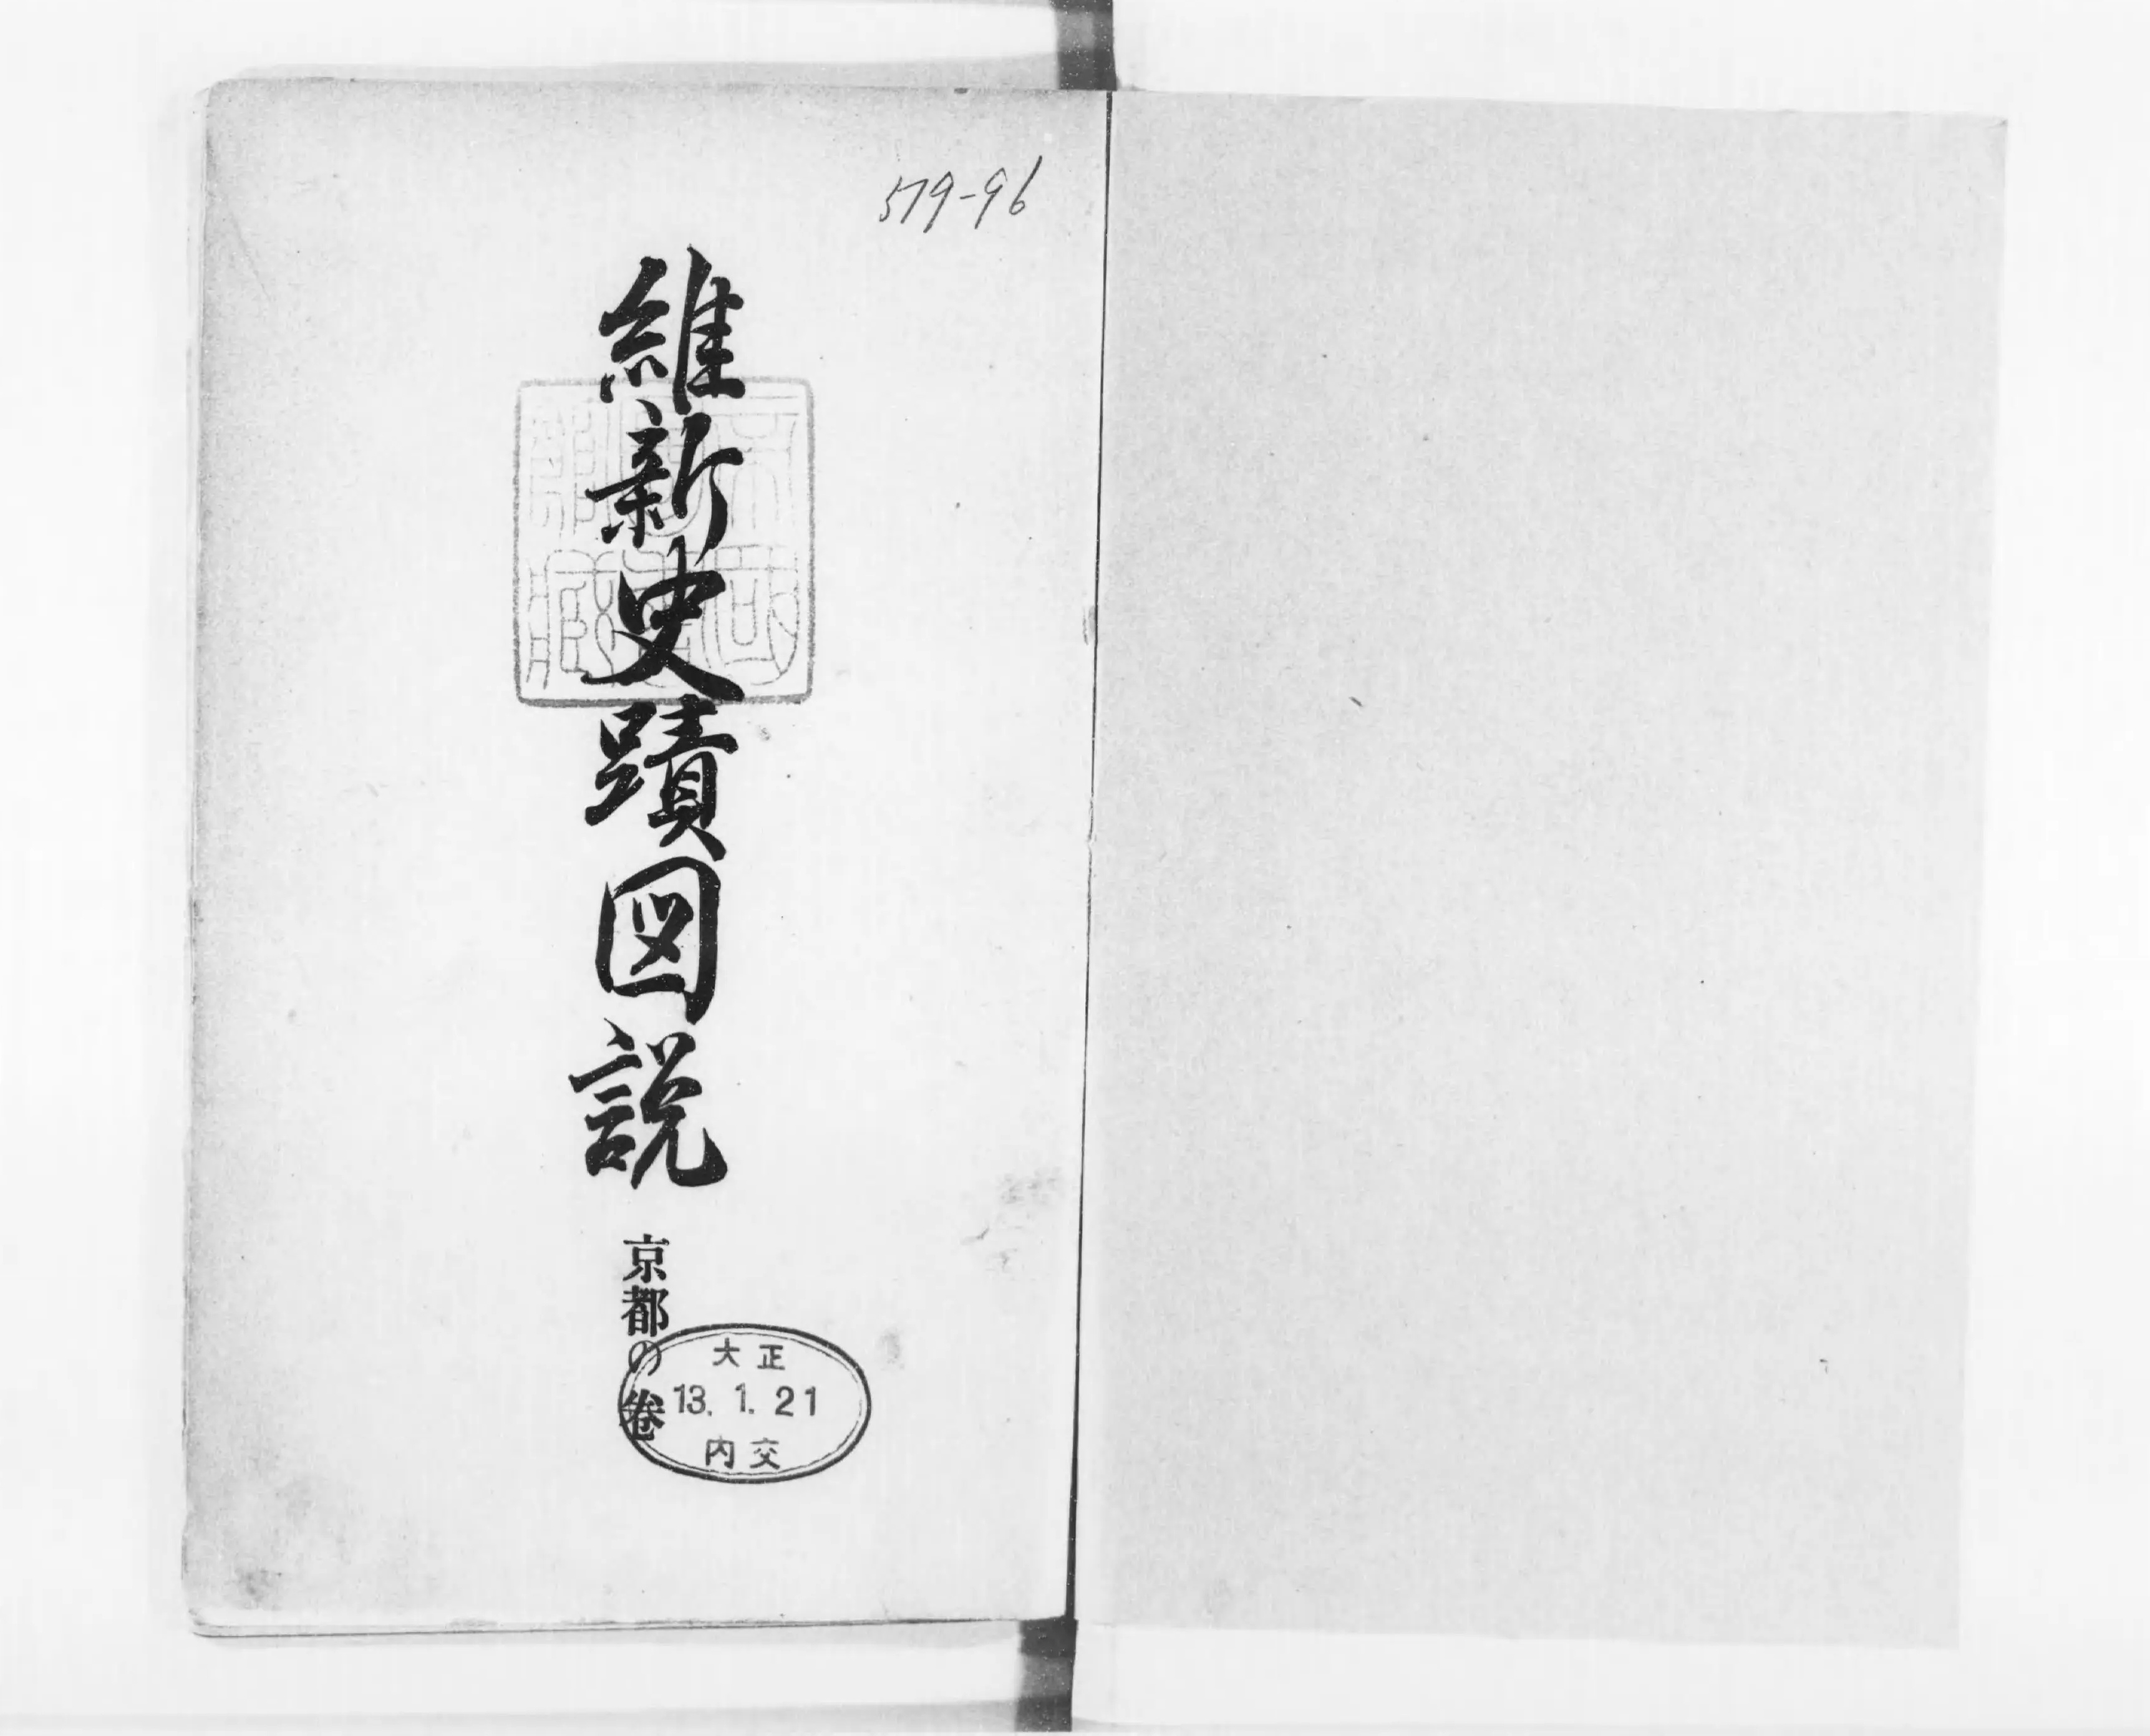 579-96
維新史蹟図説
京都の巻
大正
13.1.21
内交